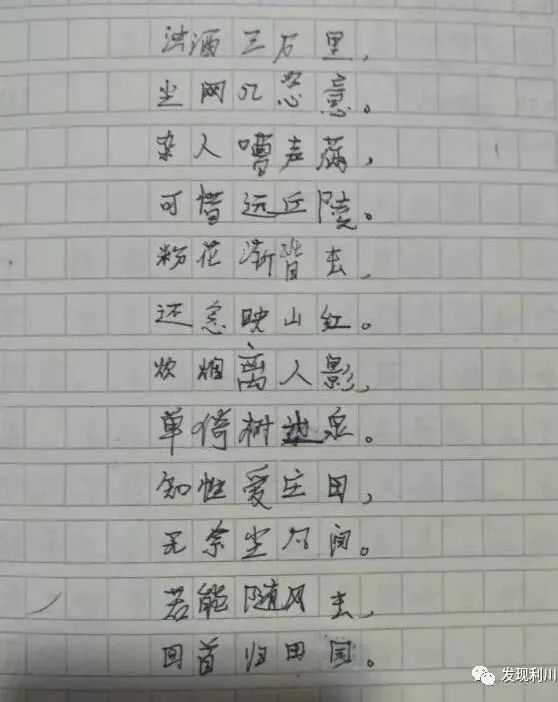 洒三万里,
尘网意。
杂人嘈声满,
可惜远丘陵。
粉花渐皆去,
还念映山红。
炊烟离人影,
单倚树泉。
知性爱庄田,
无奈尘间。
若能随风去,
回首归田园。
发现利川